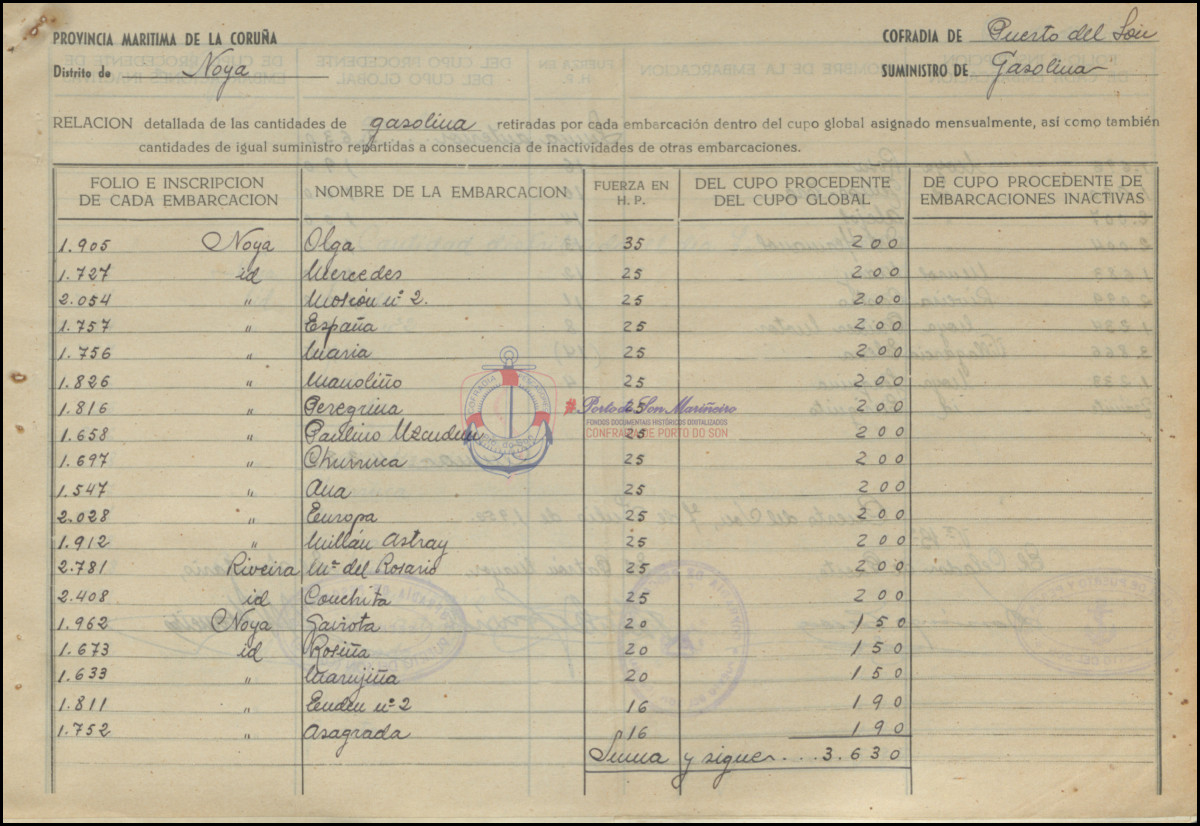 PROVINCIA MARITIMA DE LA CORUÑA
COFRADIA DE Puerto del Son
Distrito de Noya
SUMINISTRO DE Gasolina
RELACION detallada de las cantidades de gasolina retiradas por cada embarcación dentro del cupo global asignado mensualmente, así como también
cantidades de igual suministro repartidas a consecuencia de inactividades de otras embarcaciones.
FOLIO E INSCRIPCION DE CADA EMBARCACION NOMBRE DE LA EMBARCACION FUERZA EN H. P. DEL CUPO PROCEDENTE DEL CUPO GLOBAL DE CUPO PROCEDENTE DE EMBARCACIONES INACTIVAS
1.905 Noya Olga 35 200
1.727 id Mercedes 25 200
2.054 " Moscón nº 2. 25 200
1.757 " España 25 200
1.756 " Maria 25 200
1.826 " Manoliño 25 200
1.816 " Peregrina 25 200
1.658 " Paulino Uzcudun 25 200
1.697 " Churruca 25 200
1.547 " Ana 25 200
2.028 " Europa 25 200
1.912 " Millán Astray 25 200
2.781 Riveira Mª del Rosario 25 200
2.408 id Conchita 25 200
1.962 Noya Gaivota 20 150
1.673 id Rosiña 20 150
1.633 " Marujiña 20 150
1.811 " nº 2 16 190
1.752 " Asagrada 16 190
Suma y sigue....3.630
# Porto do Son Mariñeiro
FONDOS DOCUMENTAIS HISTÓRICOS DIGITALIZADOS
CONFRARÍA DE PORTO DO SON